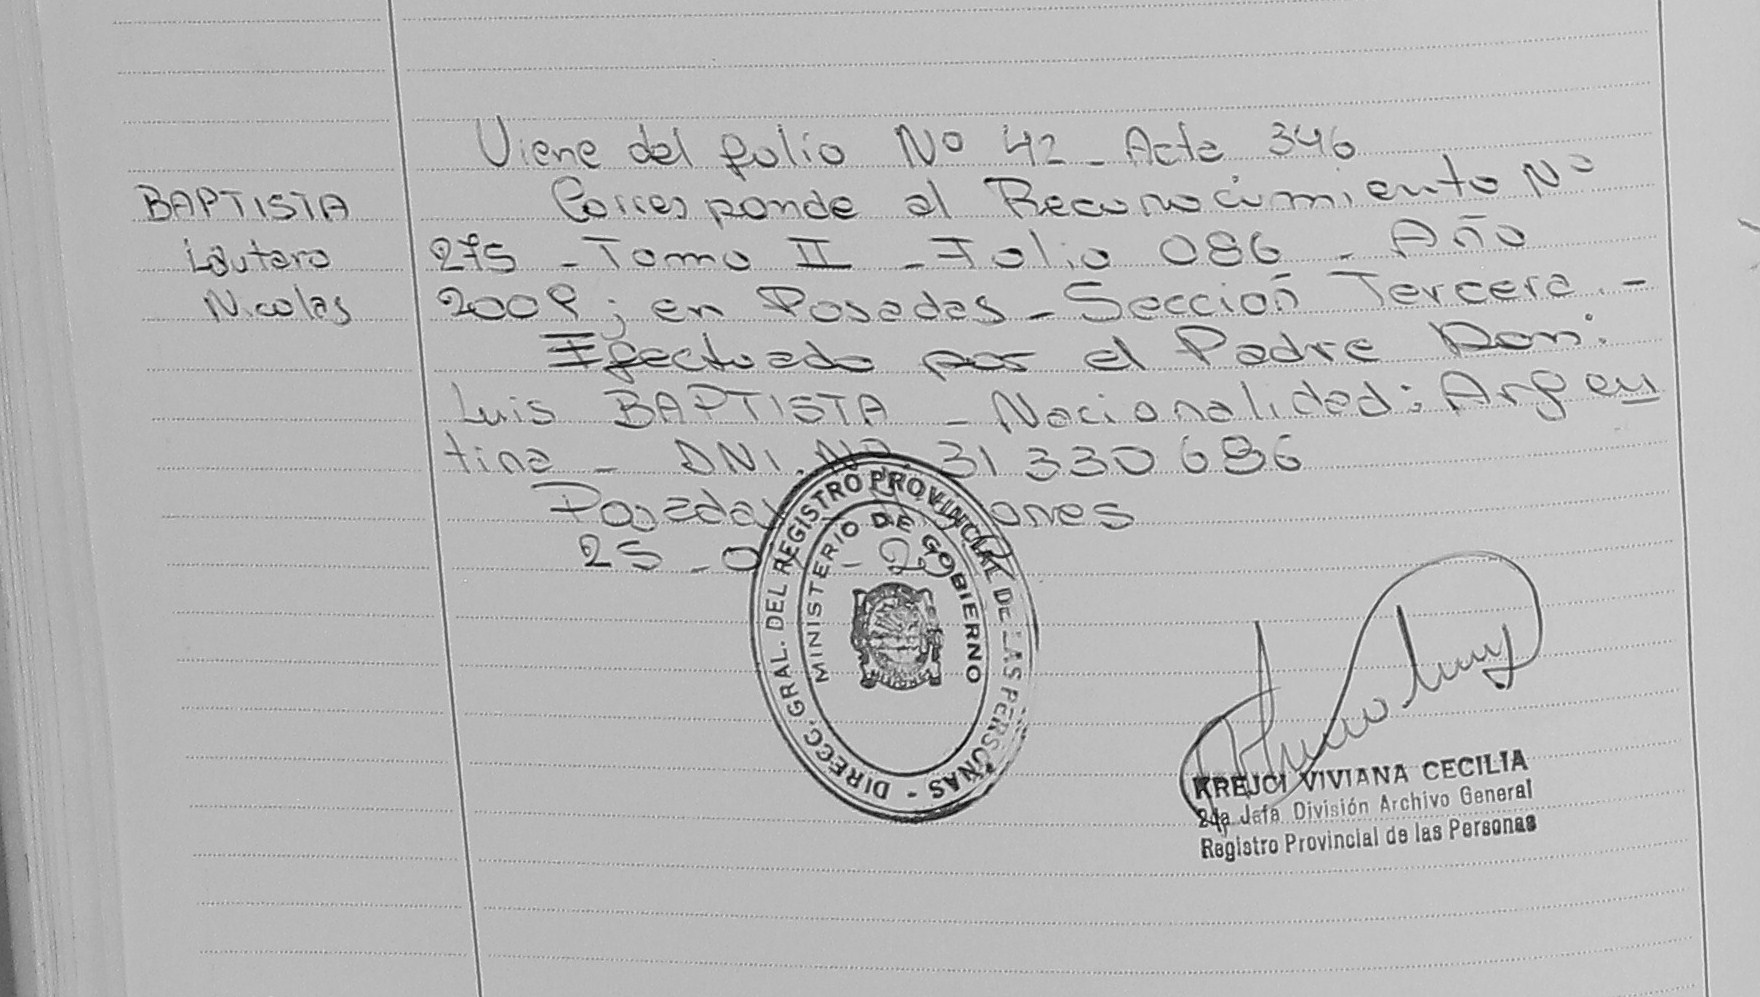 Viene del folio Nº 42 - Acta 346
BAPTISTA
Lautaro
Nicolas
Corresponde al Reconocimiento Nº
275 - Tomo II - Folio 086 - Año
2009; en Posadas - Sección Tercera. -
Efectuado por el Padre Don:
Luis BAPTISTA - Nacionalidad: Argen
tina - DNI. Nº 31 330 686
Posadas ones
25 - 0 - 2
DIRECC. GRAL. DEL REGISTRO PROVINCIAL DE LAS PERSONAS -
MINISTERIO DE GOBIERNO
KREJCI VIVIANA CECILIA
2da Jefa División Archivo General
Registro Provincial de las Personas